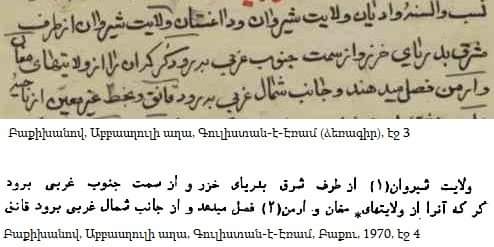 نسب والسنه وادیان ولایت شیروان و داغستان ولایت شیروان از طرف
شرقی بدریای خزر و از سمت جنوب غربی برود کر که آن را از ولایتهای مغان
و ارمن فصل میدهند و جانب شمال غربی برود قانق و بخط غیر معین از ناحیه
Բաքիխանով, Աբբասղուլի աղա, Գուլիստան-է-Էռամ (ձեռագիր), էջ 3
ولایت شیروان(۱) از طرف شرق بدریای خزر و از سمت جنوب غربی برود
کر که آنرا از ولایتهای* مغان و ارمن(۲) فصل میدهد و از جانب شمال غربی برود قانق
Բաքիխանով, Աբբասղուլի աղա, Գուլիստան-է-Էռամ, Բաքու, 1970, էջ 4